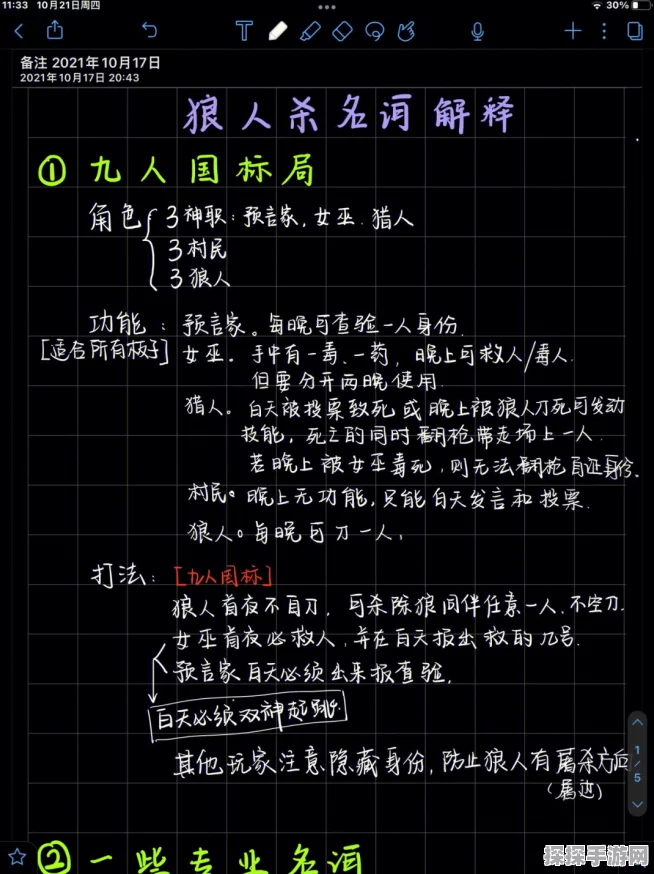 11:33 10月21日周四
30%
备注 2021年10月17日
2021年10月17日 20:43
狼人杀名词解释
① 九人国标局
角色 3神职：预言家，女巫.猎人
3村民
3狼人
功能：预言家。每晚可查验一人身份.
[适合所有板子] 女巫。手中有一毒、一药，晚上可救人/毒人.
但要分开两晚使用.
猎人。白天被投票致死或晚上被狼人刀死可发动
技能，死亡的同时翻枪带走场上一人.
若晚上被女巫毒死，则无法翻枪自证身份.
村民。晚上无功能，只能白天发言和投票.
狼人。每晚可刀一人.
打法：[九人国标]
狼人首夜不自刀，可杀除狼同伴任意一人.不空刀.
女巫首夜必救人，并在白天报出救的几号.
预言家白天必须出来报查验.
白天必须双神起跳.
其他玩家注意隐藏身份，防止狼人有屠杀方向
（屠边）
1/5
② 一些专业名词
探探手游网